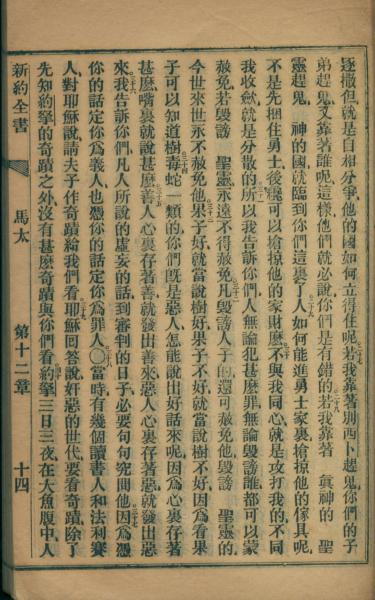 逐撒但就是自相分爭他的國如何立得住呢若我靠著別西卜趕鬼你們的子
弟趕鬼又靠著誰呢這樣他們就必說你們是有錯的若我靠著 眞神的 聖
靈趕鬼 神的國就臨到你們這裏了人如何能進勇士家裏搶掠他的傢具呢
不是先捆住勇士後纔可以搶掠他的家財麽不與我同心就是攻打我的不同
我收斂就是分散的所以我告訴你們人無論犯甚麽罪無論毀謗誰都可以蒙
赦免若毀謗 聖靈永遠不得赦免凡毀謗人子的還可赦免他毀謗 聖靈的
今世來世永不赦免他果子好就當說樹好果子不好就當說樹不好因爲看果
子可以知道樹毒蛇一類的你們旣是惡人怎能說出好話來呢因爲心裏存著
甚麽嘴裏就說甚麽善人心裏存著善就發出善來惡人心裏存著惡就發出惡
來我告訴你們凡人所說的虛妄的話到審判的日子必要句句究問他因爲憑
你的話定你爲義人也憑你的話定你爲罪人〇當時有幾個讀書人和法利賽
人對耶穌說請夫子作奇蹟給我們看耶穌回答說奸惡的世代要看奇蹟除了
先知約拏的奇蹟之外沒有甚麽奇蹟與你們看約拏三日三夜在大魚腹中人
新約全書 馬太 第十二章 十四